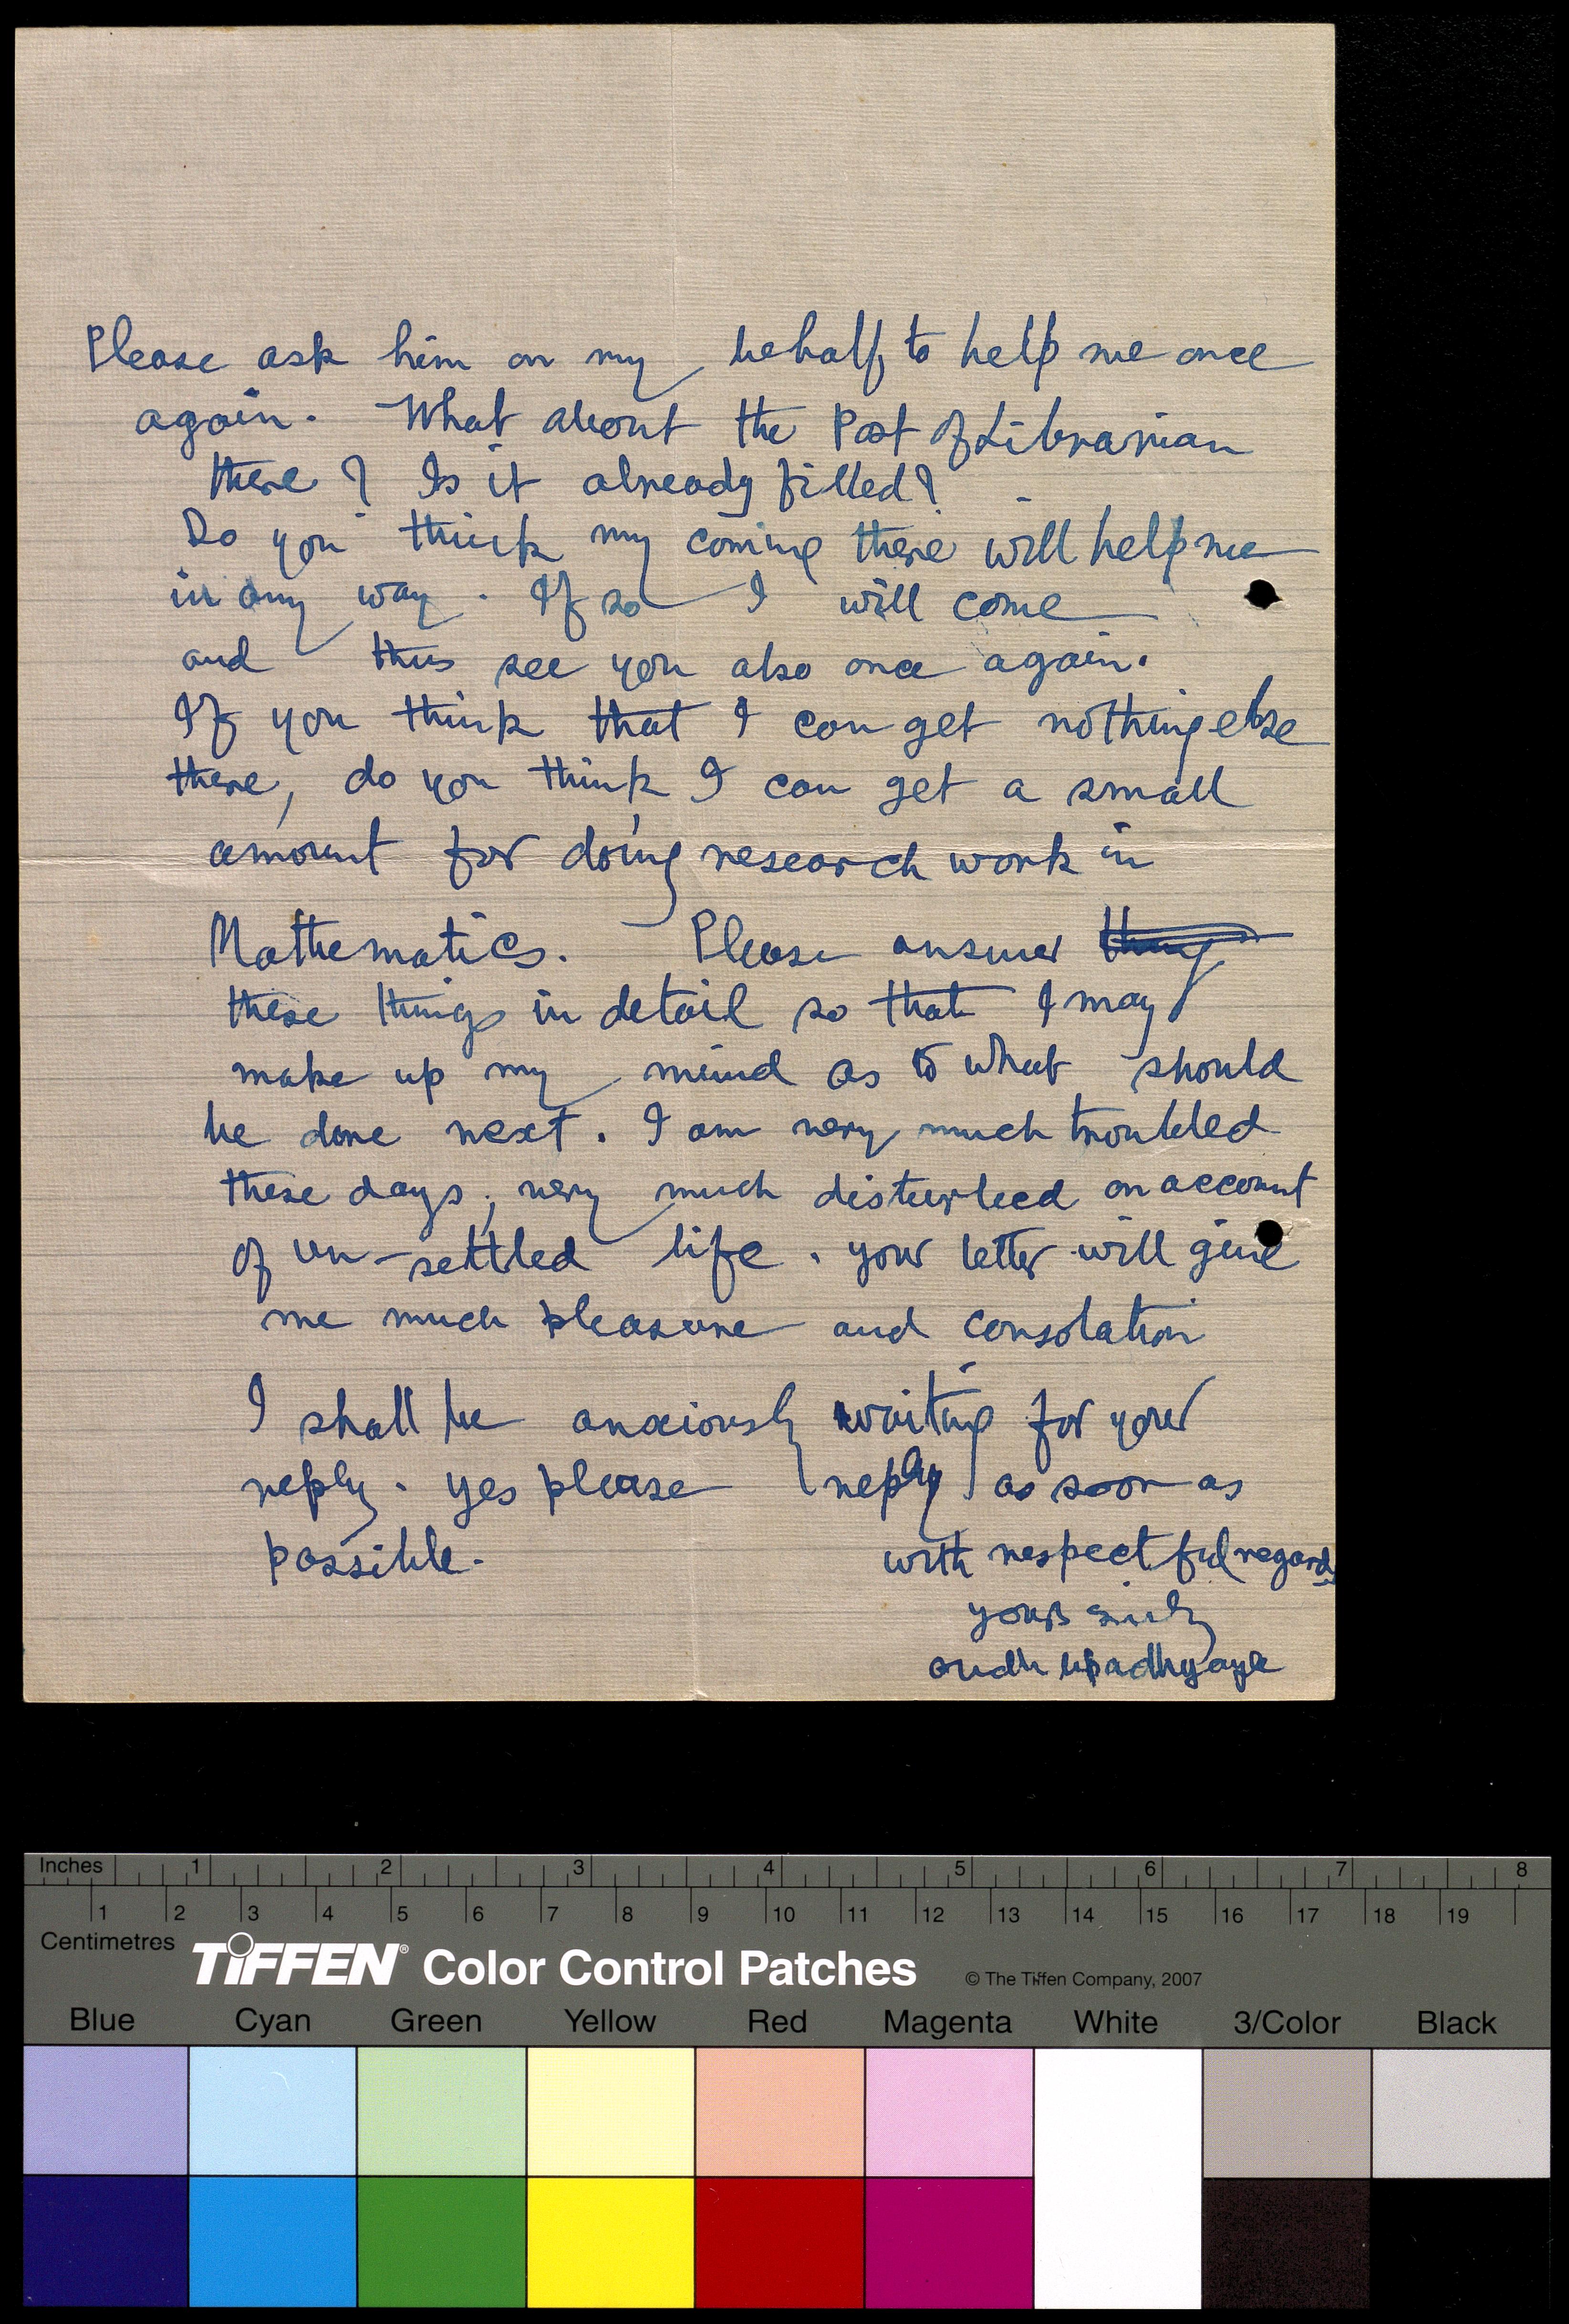 Please ask him on my behalf to help me once
again. What about the Post of Librarian
there? Is it already filled?
Do you think my coming there will help me
in any way. If so I will come
and thus see you also once again.
If you think that I can get nothing else
there, do you think I can get a small
amount for doing research work in
Mathematics. Please answer
these things in detail so that I may
make up my mind as to what should
be done next. I am very much troubled
these days, very much disturbed on account
of un-settled life. your letter will give
me much pleasure and consolation
I shall be anxiously waiting for your
reply. yes please reply as soon as
possible.
with respectful regards
yours
Upadhyaya
Inches 1 2 3 4 5 6 7 8
1 2 3 4 5 6 7 8 9 10 11 12 13 14 15 16 17 18 19
Centimetres
TIFFEN® Color Control Patches © The Tiffen Company, 2007
Blue Cyan Green Yellow Red Magenta White 3/Color Black